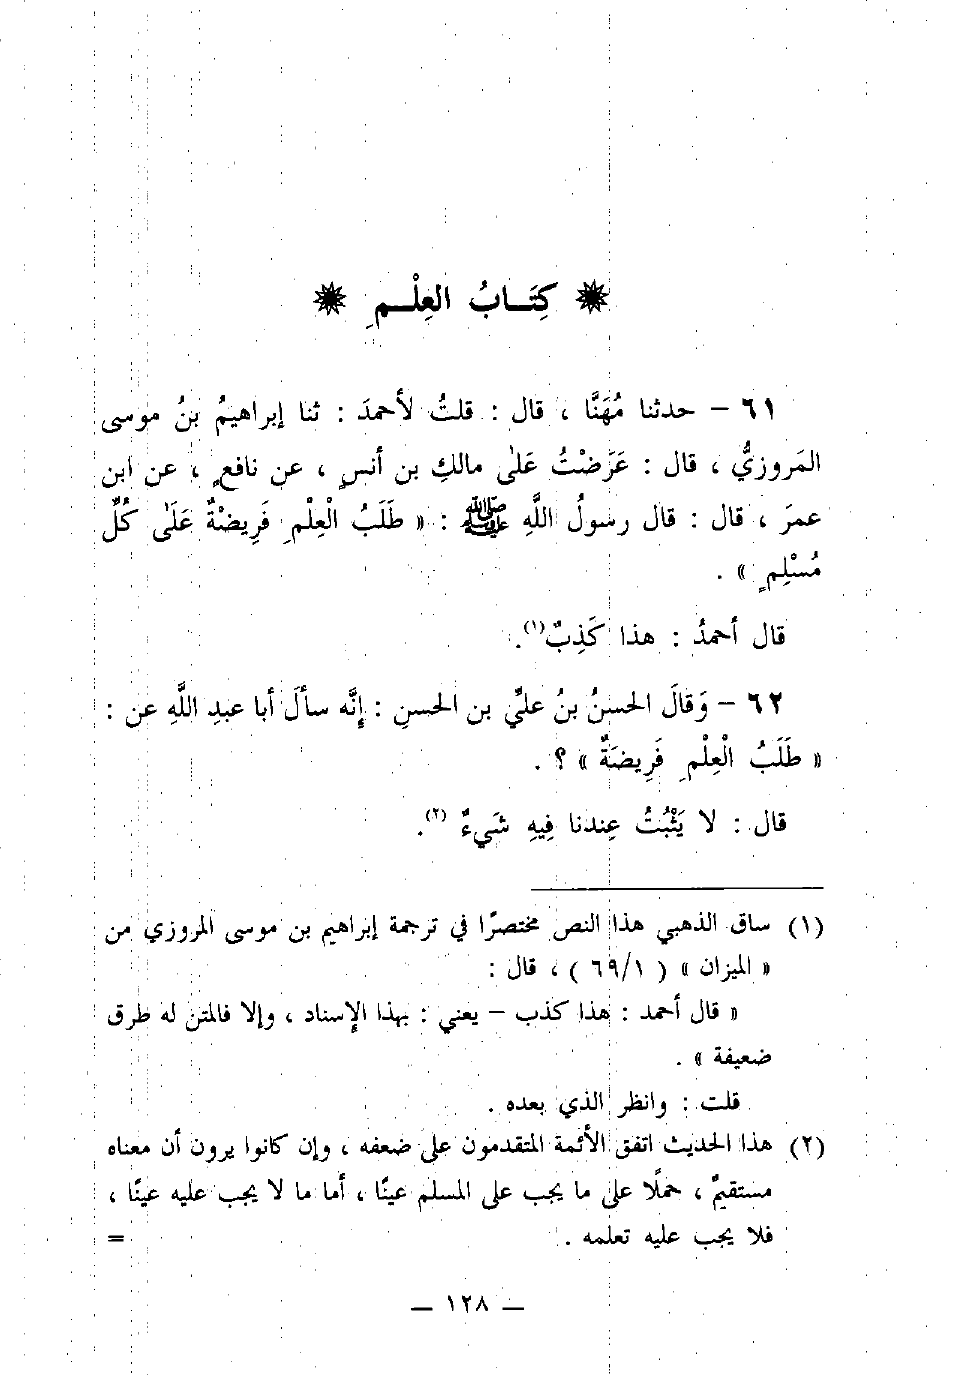 كِتَــابُ العِلْــمِ
٦١ – حدثنا مُهَنَّا ، قال : قلتُ لأحمدَ : ثنا إبراهيمُ بنُ موسى
المَروزيُّ ، قال : عَرَضْتُ عَلىٰ مالكِ بن أنسٍ ، عن نافعٍ ، عن ابن
عمرَ ، قال : قال رسولُ اللَّهِ ﷺ : « طَلَبُ الْعِلْمِ فَرِيضْةٌ عَلَىٰ كُلِّ
مُسْلِمٍ » .
قال أحمدُ : هذا كَذِبٌ(١).
٦٢ – وَقالَ الحسنُ بنُ عليِّ بن الحسنِ : إِنَّه سألَ أبا عبدِ اللَّهِ عن :
« طَلَبُ الْعِلْمِ فَرِيضَةٌ » ؟ .
قال : لا يَثْبُتُ عِندنا فِيهِ شَيءٌ (٢).
(١) ساق الذهبي هذا النص مختصرًا في ترجمة إبراهيم بن موسى المروزي من
« الميزان » ( ٦٩/١ ) ، قال :
« قال أحمد : هذا كذب – يعني : بهذا الإسناد ، وإلا فالمتن له طرق
ضعيفة » .
قلت : وانظر الذي بعده .
(٢) هذا الحديث اتفق الأئمة المتقدمون على ضعفه ، وإن كانوا يرون أن معناه
مستقيمٌ ، حملًا على ما يجب على المسلم عينًا ، أما ما لا يجب عليه عينًا ،
فلا يجب عليه تعلمه . =
— ١٢٨ —